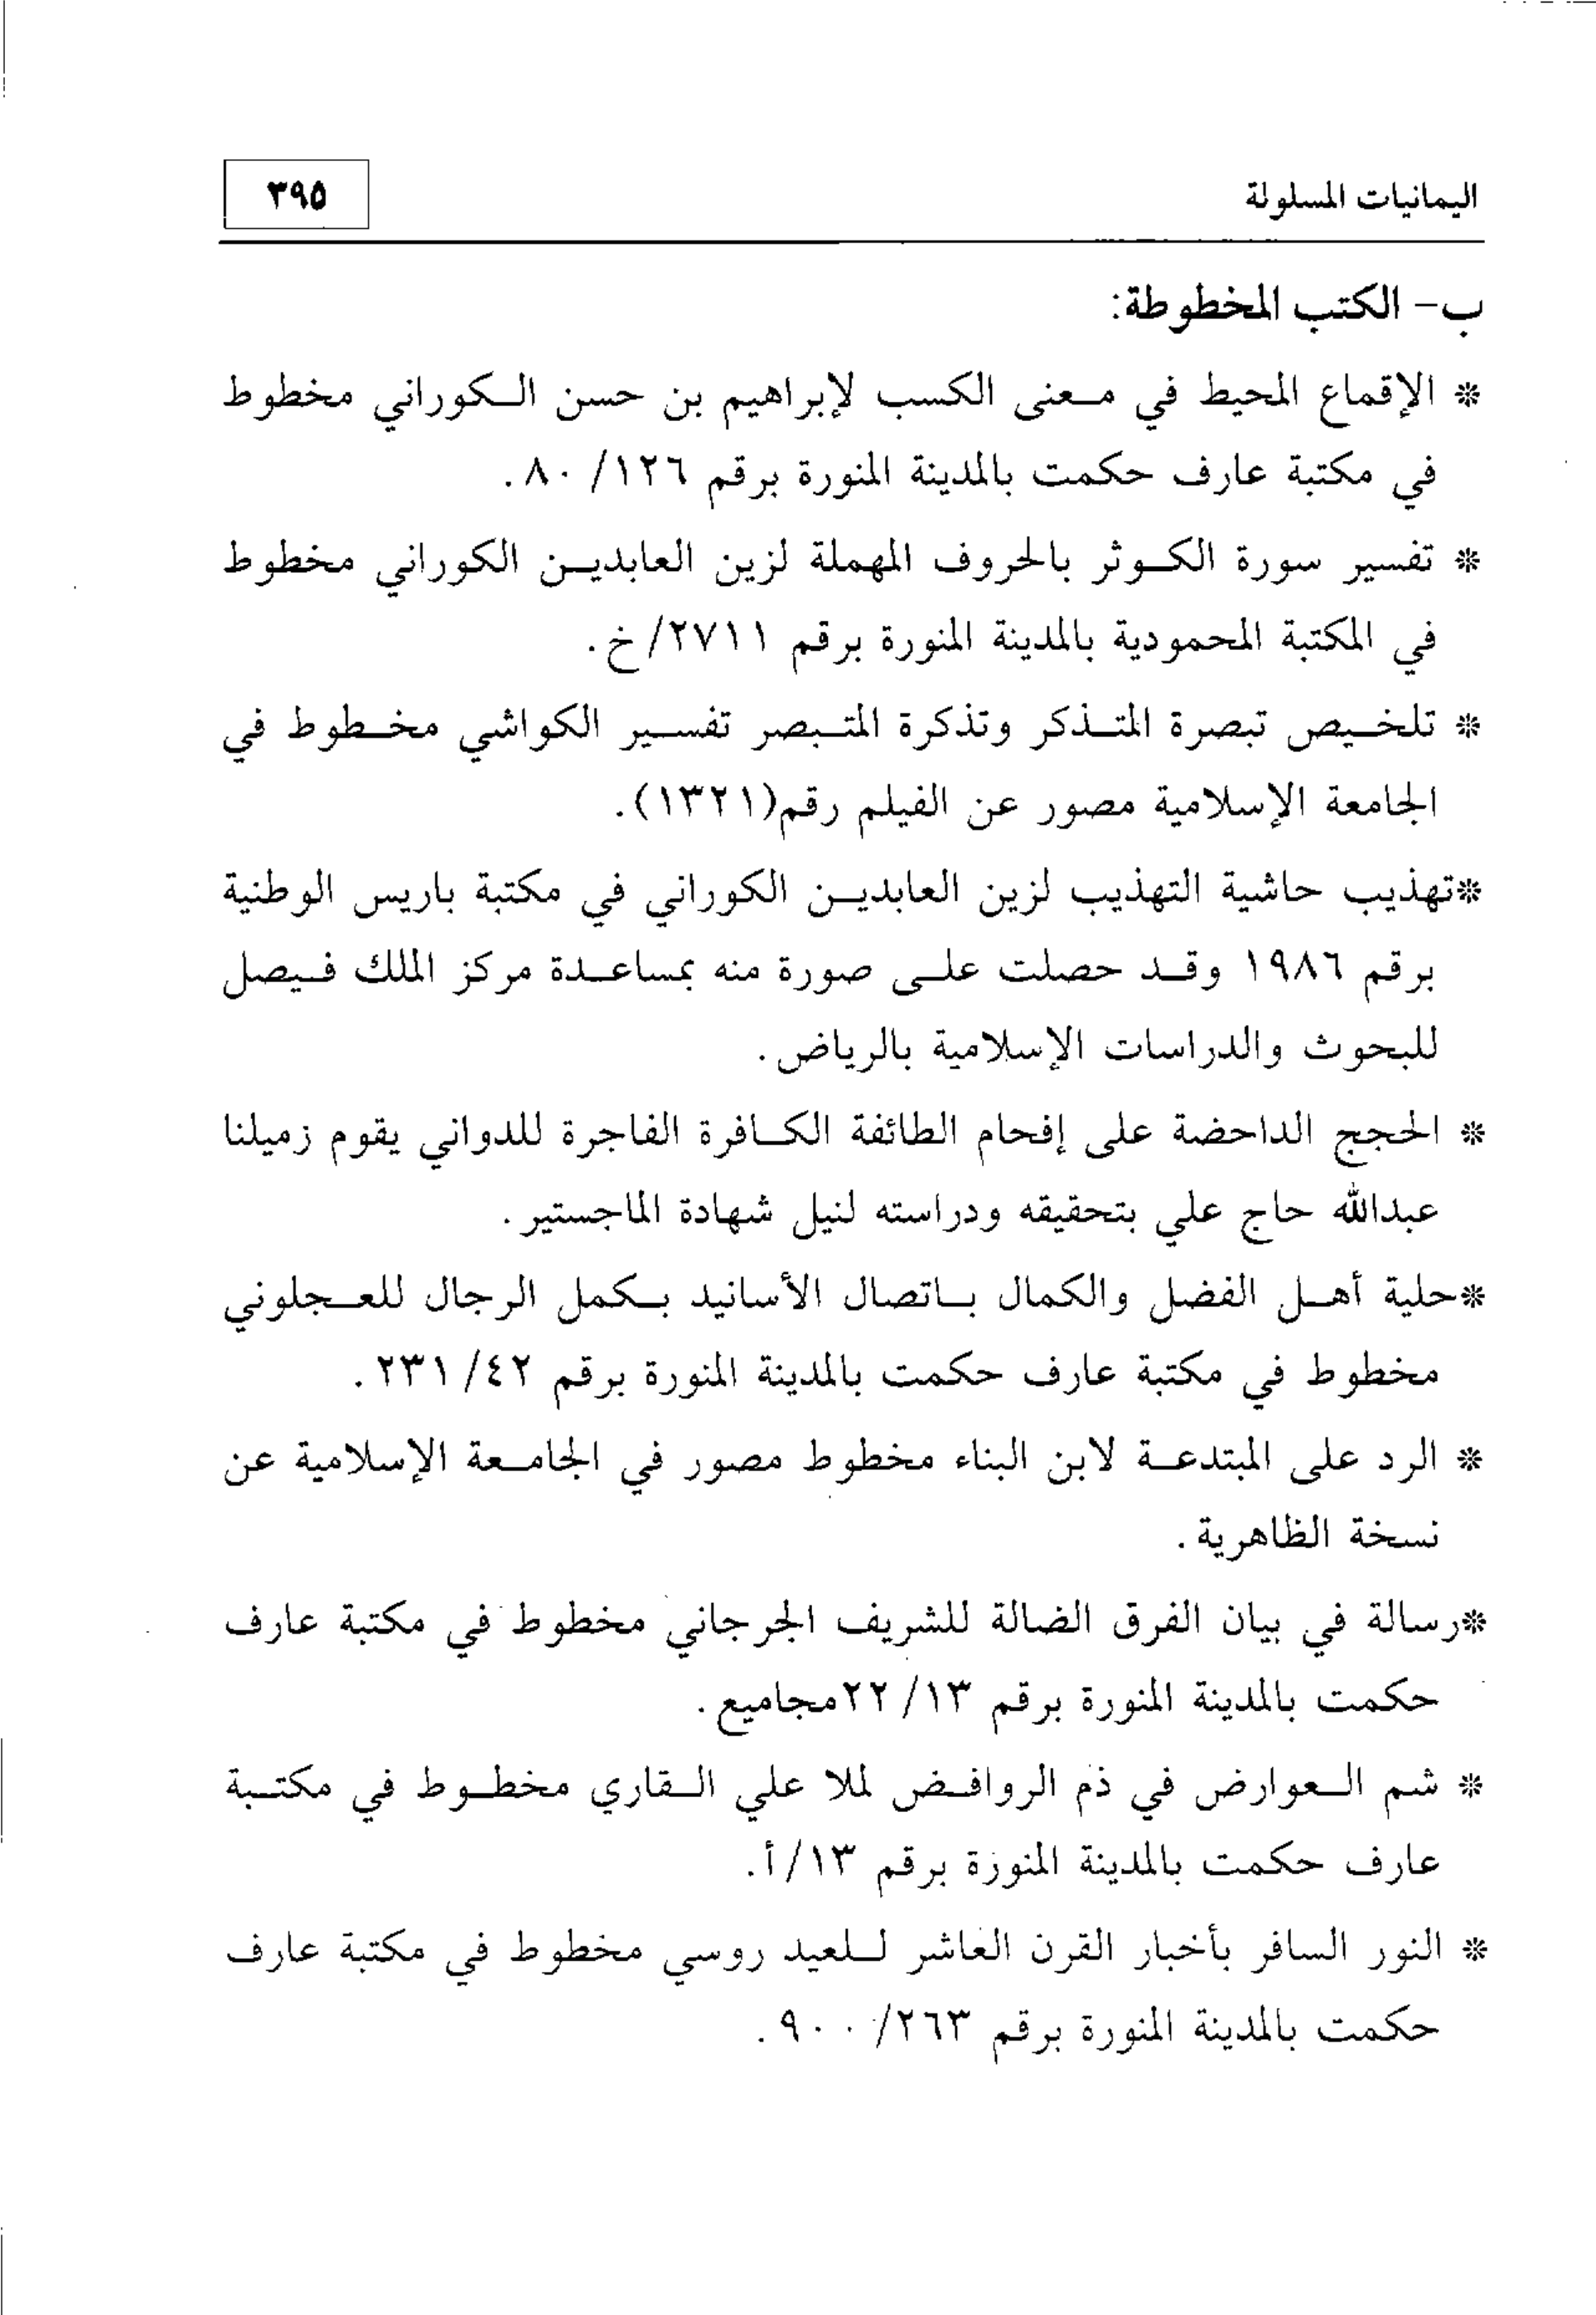 اليمانيات المسلولة
٣٩٥
ب- الكتب المخطوطة:
* الإقماع المحيط في معنى الكسب لإبراهيم بن حسن الكوراني مخطوط
في مكتبة عارف حكمت بالمدينة المنورة برقم ١٢٦/ ٨٠.
* تفسير سورة الكوثر بالحروف المهملة لزين العابدين الكوراني مخطوط
في المكتبة المحمودية بالمدينة المنورة برقم ٢٧١١/خ.
* تلخيص تبصرة المتذكر وتذكرة المتبصر تفسير الكواشي مخطوط في
الجامعة الإسلامية مصور عن الفيلم رقم(١٣٢١).
*تهذيب حاشية التهذيب لزين العابدين الكوراني في مكتبة باريس الوطنية
برقم ١٩٨٦ وقد حصلت على صورة منه بمساعدة مركز الملك فيصل
للبحوث والدراسات الإسلامية بالرياض.
* الحجج الداحضة على إفحام الطائفة الكافرة الفاجرة للدواني يقوم زميلنا
عبدالله حاج علي بتحقيقه ودراسته لنيل شهادة الماجستير.
*حلية أهل الفضل والكمال باتصال الأسانيد بكمل الرجال للعجلوني
مخطوط في مكتبة عارف حكمت بالمدينة المنورة برقم ٤٢/ ٢٣١.
* الرد على المبتدعة لابن البناء مخطوط مصور في الجامعة الإسلامية عن
نسخة الظاهرية.
*رسالة في بيان الفرق الضالة للشريف الجرجاني مخطوط في مكتبة عارف
حكمت بالمدينة المنورة برقم ١٣/ ٢٢مجاميع.
* شم العوارض في ذم الروافض لملا علي القاري مخطوط في مكتبة
عارف حكمت بالمدينة المنورة برقم ١٣/أ.
* النور السافر بأخبار القرن العاشر للعيد روسي مخطوط في مكتبة عارف
حكمت بالمدينة المنورة برقم ٢٦٣/ ٩٠٠.